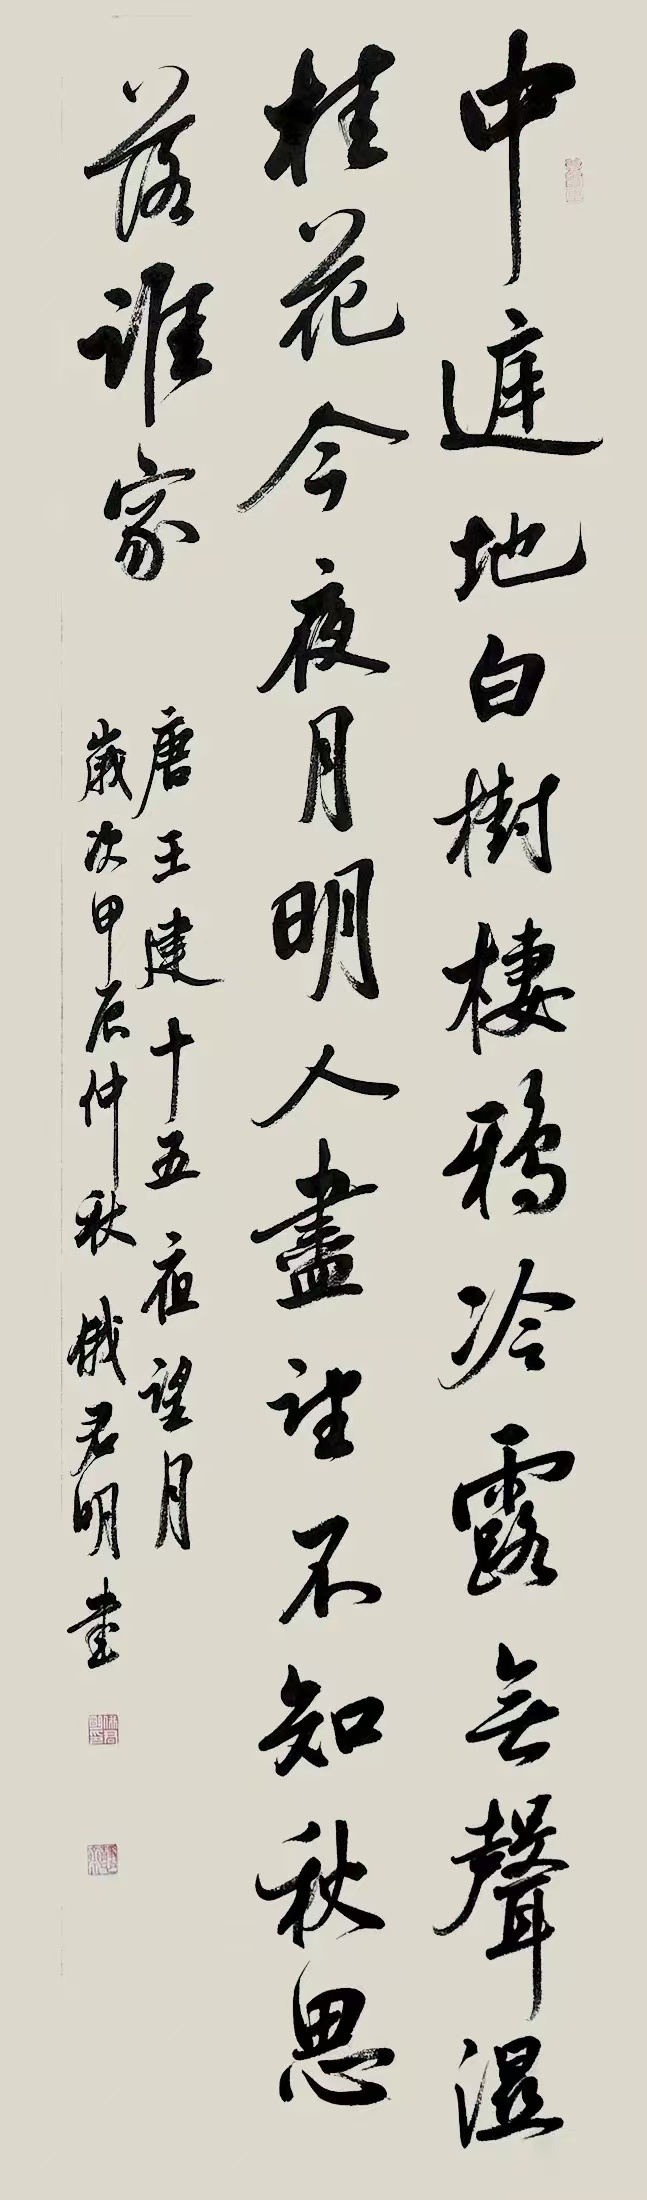 中庭地白樹棲鴉冷露無聲濕
桂花今夜月明人盡望不知秋思
落誰家
唐王建十五夜望月
歲次甲辰仲秋 君明書